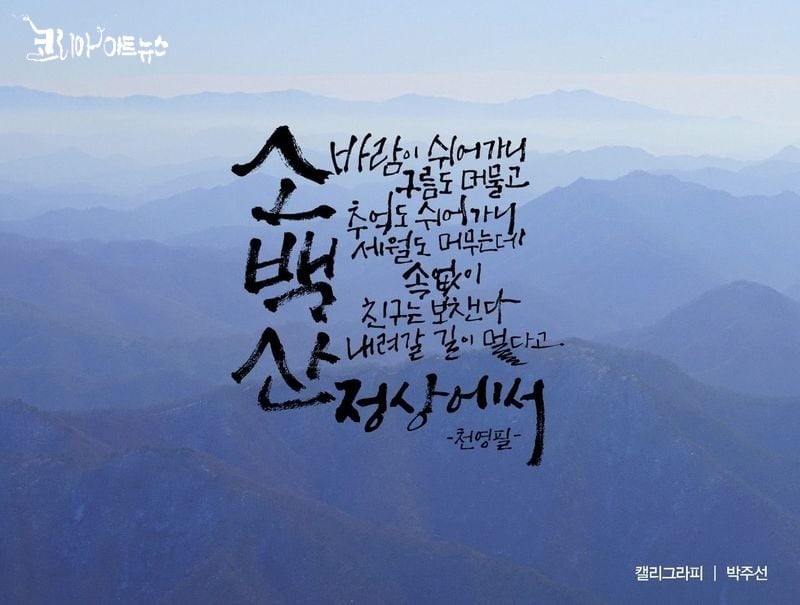 코리아아트뉴스
소백산 정상에서
바람이 쉬어가니
구름도 머물고
추억도 쉬어가니
세월도 머무는데
속없이
친구는 보챈다
내려갈 길이 멀다고
-천영필-
캘리그라피 | 박주선